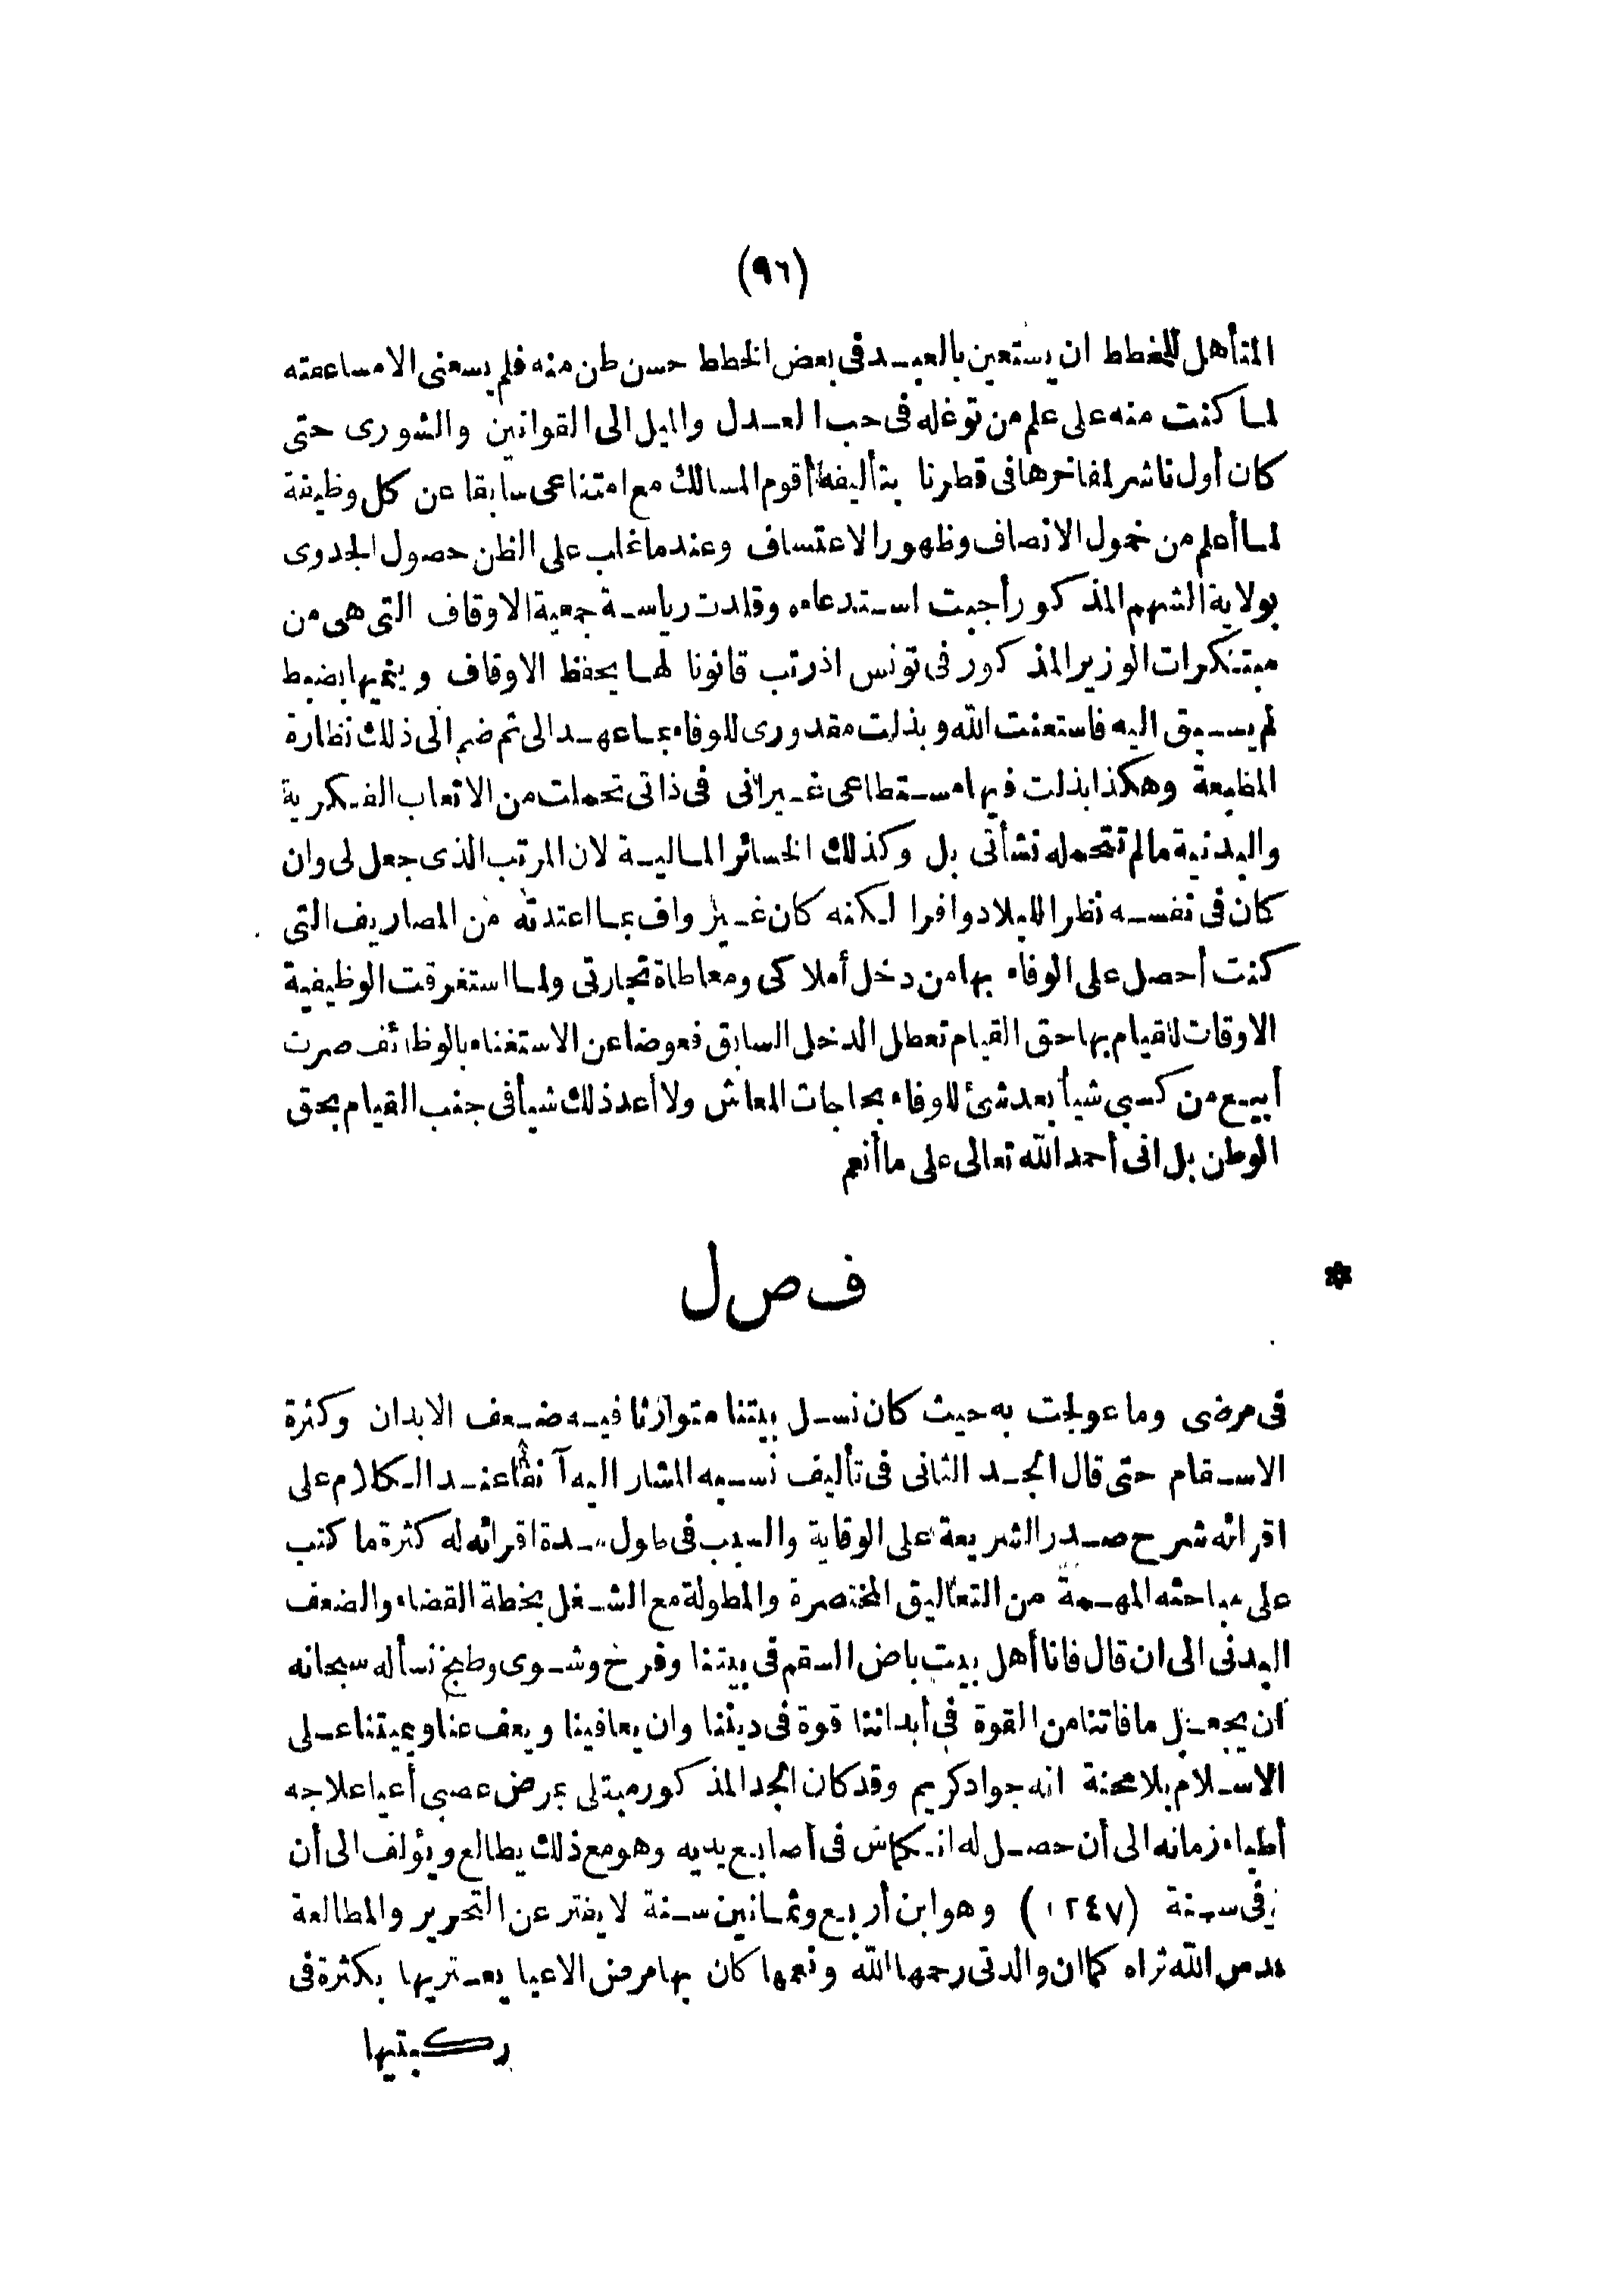 (٩٦)
المتأهل للخطط ان يستعين بالعبد فى بعض الخطط حسن ظن منه فلم يسعنى الا مساعفته
لما كنت منه على علم من توغله فى حب العدل والميل الى القوانين والشورى حتى
كان أول ناشر لمفاخرها فى قطرنا بتأليفه أقوم المسالك مع امتناعى سابقا عن كل وظيفة
لما أعلم من خمول الانصاف وظهور الاعتساف وعندما غلب على الظن حصول الجدوى
بولاية الشهم المذكور أجبت استدعاءه وقلدت رياسة جمعية الاوقاف التى هى من
مبتكرات الوزير المذكور فى تونس اذ رتب قانونا لها يحفظ الاوقاف وينميها بضبط
لم يسبق اليه فاستعنت الله وبذلت مقدورى للوفاء بما عهد الى ثم ضم الى ذلك نظارة
المطبعة وهكذا بذلت فيها مستطاعى غير انى فى ذاتى تحملت من الاتعاب الفكرية
والبدنية مالم تتحمله نشأتى بل وكذلك الخسائر المالية لان المرتب الذى جعل لى وان
كان فى نفسه نظرا للبلاد وافرا لكنه كان غير واف بما اعتدته من المصاريف التى
كنت أحصل على الوفاء بها من دخل أملاكى ومعاطاة تجارتى ولما استغرقت الوظيفية
الاوقات للقيام بها حق القيام تعطل الدخل السابق فعوضا عن الاستغناء بالوظائف صرت
أبيع من كسبى شيأ بعد شئ للوفاء بحاجات المعاش ولا أعد ذلك شيأ فى جنب القيام بحق
الوطن بل انى أحمد الله تعالى على ما أنعم
* فصل
فى مرضى وما عولجت به حيث كان نسل بيتنا متوارثا فيه ضعف الابدان وكثرة
الاسقام حتى قال الجد الثانى فى تأليف نسبه المشار اليه آنفا عند الكلام على
اقرائه شرح صدر الشريعة على الوقاية والسبب فى طول مدة اقرائه له كثرة ما كتب
على مباحثه المهمة من التعاليق المختصرة والمطولة مع الشغل بخطة القضاء والضعف
البدنى الى ان قال فانا أهل بيت باض السقم فى بيتنا وفرخ وشوى وطبخ نسأله سبحانه
أن يجعل ما فاتنا من القوة فى أبداننا قوة فى ديننا وان يعافينا ويعف عنا ويميتنا على
الاسلام بلا محنة انه جواد كريم وقد كان الجد المذكور مبتلى بمرض عصبى أعيا علاجه
أطباء زمانه الى أن حصل له انكماش فى أصابع يديه وهو مع ذلك يطالع ويؤلف الى أن
فى سنة (١٢٤٧) وهو ابن أربع وثمانين سنة لا يفتر عن التحرير والمطالعة
قدس الله ثراه كما ان والدتى رحمها الله ونعمها كان بها مرض الاعيا يعتريها بكثرة فى
ركبتيها